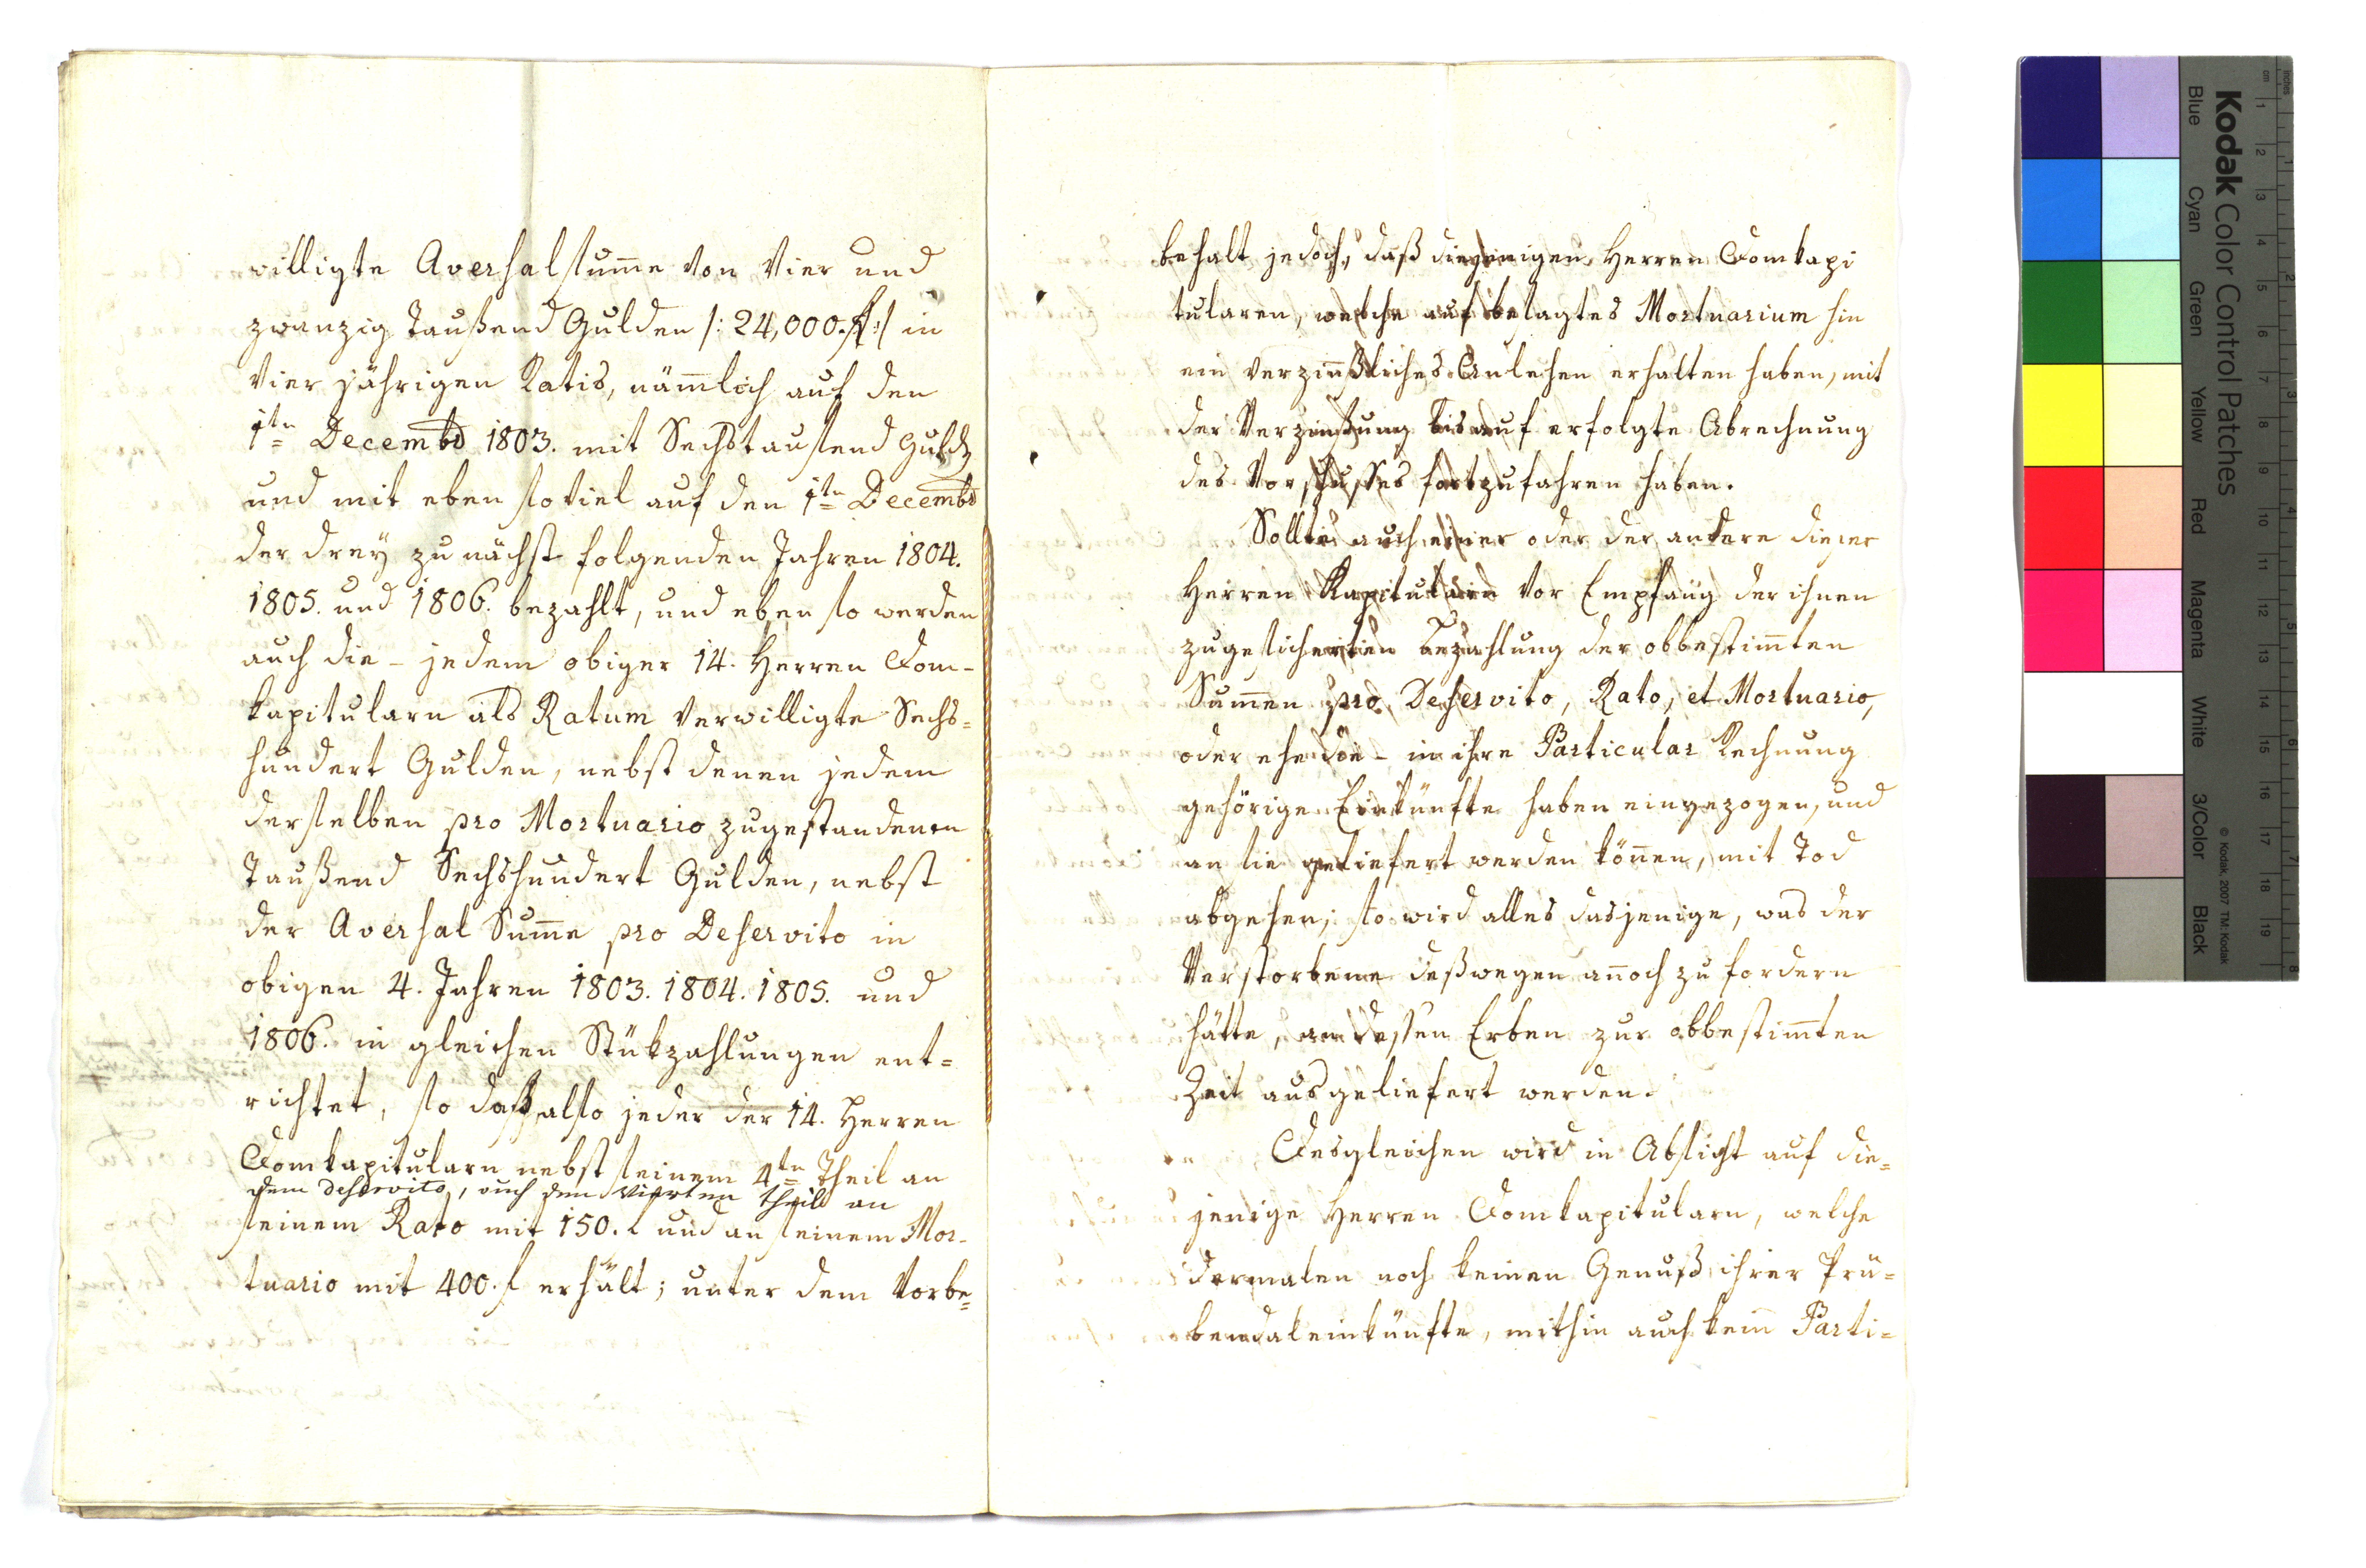 willigte Aversalsum̅e von Vier und
zwanzig Taußend Gulden /: 24,000. f :/ in
Vier jährigen Ratis, näm̅lich auf den
1tn Decembr 1803. mit Sechstausend Guld
und mit eben soviel auf den 1tn Decembr
der drey zunächst folgenden Jahren 1804.
1805. und 1806. bezahlt, und eben so werden
auch die - jedem obiger 14. Herren Dom-
kapitularn als Ratum verwilligte Sechs=
hundert Gulden, nebst denen jedem
derselben pro Mortuario zugestandenen
Taußend Sechshundert Gulden, nebst
der Aversal Sum̅e pro Deservito in
obigen 4. Jahren 1803. 1804. 1805. und
1806. in gleichen Stükzahlungen ent=
richtet, so daß also jeder der 14. Herren
Domkapitularn nebst seinem 4tn Theil an
dem deservito, auch den vierten theil an
seinem Rato mit 150. f und an seinem Mor-
tuario mit 400. f erhält; unter dem Vorbe=
behalt jedoch, daß diejenigen Herren Domkapi
tularen, welche auf besagtes Mortuarium hin
ein verzinßliches Anlehen erhalten haben, mit
der Verzinsung bis auf erfolgte Abrechnung
des Vorschusses fortzufahren haben.
Sollte auch einer oder der andere dieser
Herren Kapitularn vor Empfang der ihnen
zugesicherten Bezahlung der obbestim̅ten
Sum̅en pro Deservito, Rato, et Mortuario,
oder ehe die - in ihre Particular Rechnung
gehörige Einkünfte haben eingezogen, und
an sie geliefert werden kön̅en, mit Tod
abgehen; so wird alles dasjenige, was der
Verstorbene deßwegen an̅och zu fordern
hätte, an dessen Erben zur obbestim̅ten
Zeit ausgeliefert werden.
Desgleichen wird in Absicht auf die=
jenige Herren Domkapitularn, welche
dermalen noch keinen Genuß ihrer Prä=
bendaleinkünfte, mithin auch kein Parti=
Kodak Color Control Patches
Blue Cyan Green Yellow Red Magenta White 3/Color Black
© Kodak, 2007 TM: Kodak
inches
cm
1 2 3 4 5 6 7 8 9 10 11 12 13 14 15 16 17 18 19
1 2 3 4 5 6 7 8